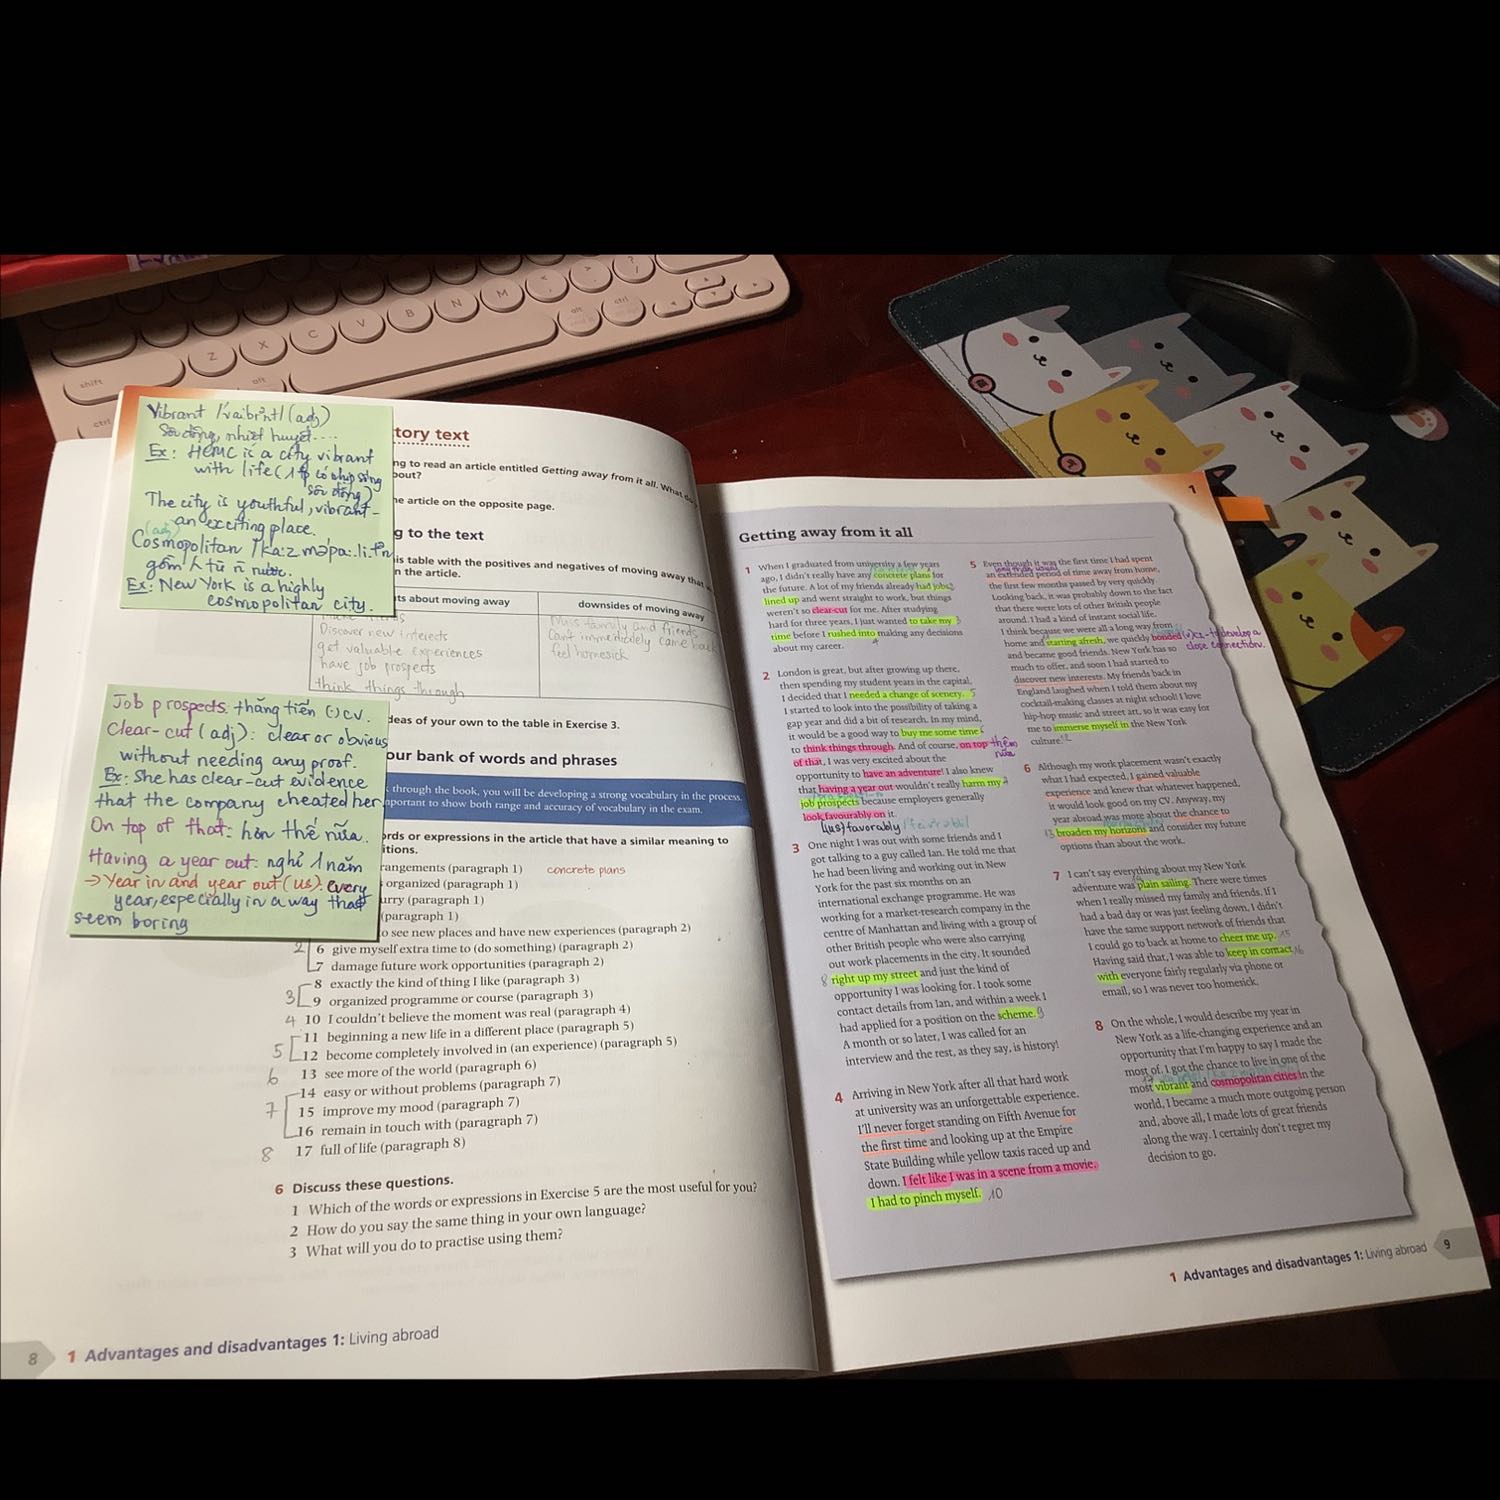 Vibrant /'vaibrənt/ (adj)
Sôi động, nhiệt huyết....
Ex: HCMC is a city vibrant
with life (1 tp có nhịp sống
sôi động)
The city is youthful, vibrant -
an exciting place.
(adj)
Cosmopolitan
gồm
Ex: New York is a highly
cosmopolitan city.
Job prospects: thăng tiến (-) cv.
Clear-cut (adj): clear or obvious
without needing any proof.
Ex: She has clear-cut evidence
that the company cheated her
On top of that: hơn thế nữa.
Having a year out: nghỉ 1 năm
→ Year in and year out (us): every
year, especially in a way that
seem boring
tory text
ng to read an article entitled Getting away from it all. What do
bout?
he article on the opposite page.
g to the text
is table with the positives and negatives of moving away that
n the article.
ts about moving away
downsides of moving away
Discover new interests
get valuable experiences
have job prospects
think things through
Miss family and friends
Can't immediately came back
feel homesick
deas of your own to the table in Exercise 3.
our bank of words and phrases
through the book, you will be developing a strong vocabulary in the process.
portant to show both range and accuracy of vocabulary in the exam.
rds or expressions in the article that have a similar meaning to
itions.
rangements (paragraph 1) concrete plans
organized (paragraph 1)
urry (paragraph 1)
(paragraph 1)
to see new places and have new experiences (paragraph 2)
2 6 give myself extra time to (do something) (paragraph 2)
7 damage future work opportunities (paragraph 2)
8 exactly the kind of thing I like (paragraph 3)
3 9 organized programme or course (paragraph 3)
4 10 I couldn't believe the moment was real (paragraph 4)
11 beginning a new life in a different place (paragraph 5)
5 12 become completely involved in (an experience) (paragraph 5)
6 13 see more of the world (paragraph 6)
14 easy or without problems (paragraph 7)
7 15 improve my mood (paragraph 7)
16 remain in touch with (paragraph 7)
8 17 full of life (paragraph 8)
6 Discuss these questions.
1 Which of the words or expressions in Exercise 5 are the most useful for you?
2 How do you say the same thing in your own language?
3 What will you do to practise using them?
8 1 Advantages and disadvantages 1: Living abroad
1
Getting away from it all
1 When I graduated from university a few years
ago, I didn't really have any concrete plans for
the future. A lot of my friends already had jobs
lined up and went straight to work, but things
weren't so clear-cut for me. After studying
hard for three years, I just wanted to take my
time before I rushed into making any decisions
about my career.
2 London is great, but after growing up there,
then spending my student years in the capital,
I decided that I needed a change of scenery. 5
I started to look into the possibility of taking a
gap year and did a bit of research. In my mind,
it would be a good way to buy me some time 6
to think things through. And of course, on top thêm
of that, I was very excited about the nữa
opportunity to have an adventure! I also knew
that having a year out wouldn't really harm my 7
job prospects because employers generally
look favourably on it.
(us) favorably
3 One night I was out with some friends and I
got talking to a guy called Ian. He told me that
he had been living and working out in New
York for the past six months on an
international exchange programme. He was
working for a market-research company in the
centre of Manhattan and living with a group of
other British people who were also carrying
out work placements in the city. It sounded
8 right up my street and just the kind of
opportunity I was looking for. I took some
contact details from Ian, and within a week I
had applied for a position on the scheme. 9
A month or so later, I was called for an
interview and the rest, as they say, is history!
4 Arriving in New York after all that hard work
at university was an unforgettable experience.
I'll never forget standing on Fifth Avenue for
the first time and looking up at the Empire
State Building while yellow taxis raced up and
down. I felt like I was in a scene from a movie.
I had to pinch myself. 10
5 Even though it was the first time I had spent
an extended period of time away from home,
the first few months passed by very quickly
Looking back, it was probably down to the fact
that there were lots of other British people
around. I had a kind of instant social life.
I think because we were all a long way from
home and starting afresh, we quickly bonded (v) to develop a
and became good friends. New York has so close connection.
much to offer, and soon I had started to
discover new interests. My friends back in
England laughed when I told them about my
cocktail-making classes at night school! I love
hip-hop music and street art, so it was easy for
me to immerse myself in the New York
culture. 12
6 Although my work placement wasn't exactly
what I had expected, I gained valuable
experience and knew that whatever happened,
it would look good on my CV. Anyway, my
year abroad was more about the chance to
13 broaden my horizons and consider my future
options than about the work.
7 I can't say everything about my New York
adventure was plain sailing. There were times
when I really missed my family and friends. If I
had a bad day or was just feeling down, I didn't
have the same support network of friends that
I could go to back at home to cheer me up. 15
Having said that, I was able to keep in contact 16
with everyone fairly regularly via phone or
email, so I was never too homesick.
8 On the whole, I would describe my year in
New York as a life-changing experience and an
opportunity that I'm happy to say I made the
most of. I got the chance to live in one of the
most vibrant and cosmopolitan cities in the
world, I became a much more outgoing person
and, above all, I made lots of great friends
along the way. I certainly don't regret my
decision to go.
1 Advantages and disadvantages 1: Living abroad 9
shift
ctrl
alt
Z
X
C
V
B
N
M
alt
ctrl